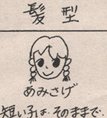 髪型
あみさげ
短い子は そのままで